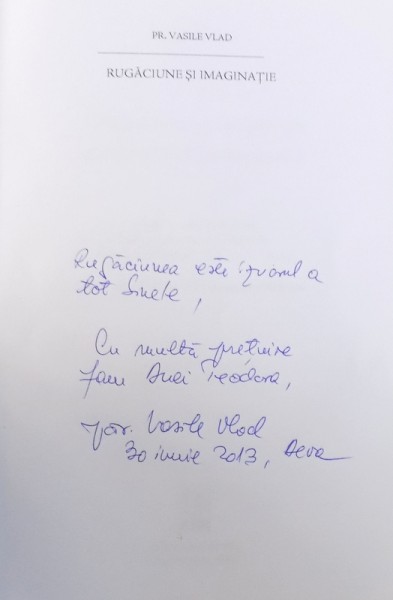 PR. VASILE VLAD
RUGĂCIUNE ȘI IMAGINAȚIE
Rugăciunea este izvorul a
tot binele,
Cu multă prețuire
Teodora,
păr. Vasile Vlad
30 iunie 2013, Deva